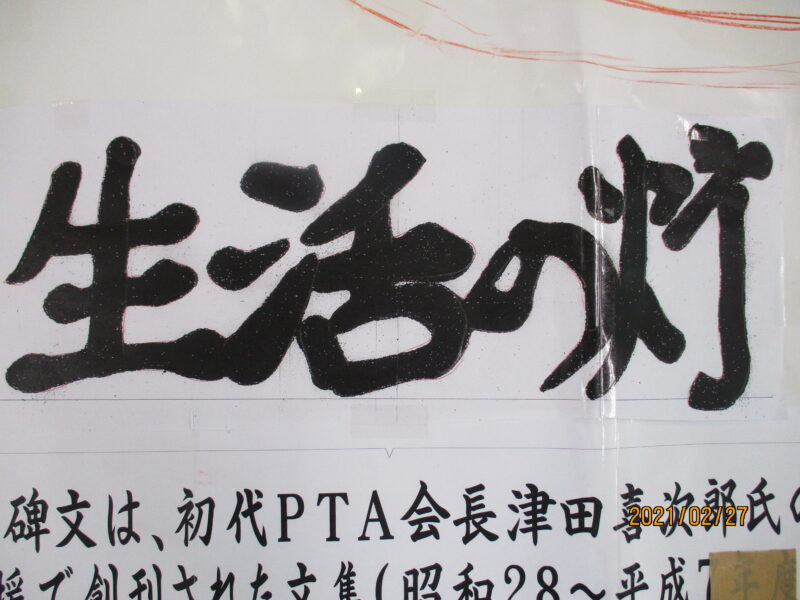 生活の灯
碑文は、初代PTA会長津田喜次郎氏の
援で創刊された文集(昭和28～平成7
2021/02/27
年度